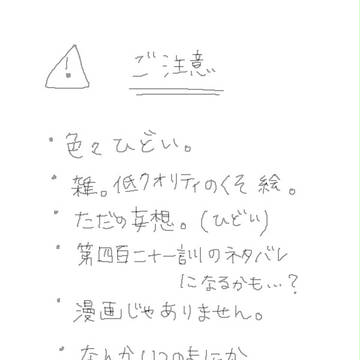 !
ご注意
・色々ひどい。
・雑。低クオリティのくそ絵。
・ただの妄想。(ひどい)
・第四百二十一訓のネタバレ
になるかも…?
・漫画じゃありません。
・なんかいつのまにか